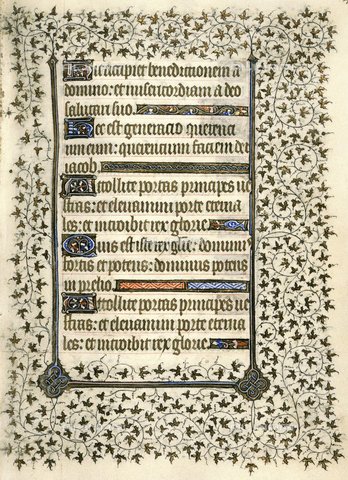 Hic accipiet benedictionem a
domino: et misericordiam a deo
salutari suo.
Hec est generacio querenci
um eum: querencium faciem dei
iacob.
Attollite portas principes ve
stras: et elevamini porte eterna
les: et introibit rex glorie.
Quis est iste rex glorie: dominus
fortis et potens: dominus potens
in prelio.
Attollite portas principes ve
stras: et elevamini porte eterna
les: et introibit rex glorie.